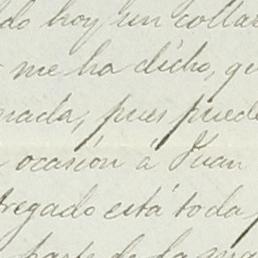 do hoy un collar
me ha dicho, qu
nada, pues puede
ocasión á Juan
tregado está toda,
parte de la